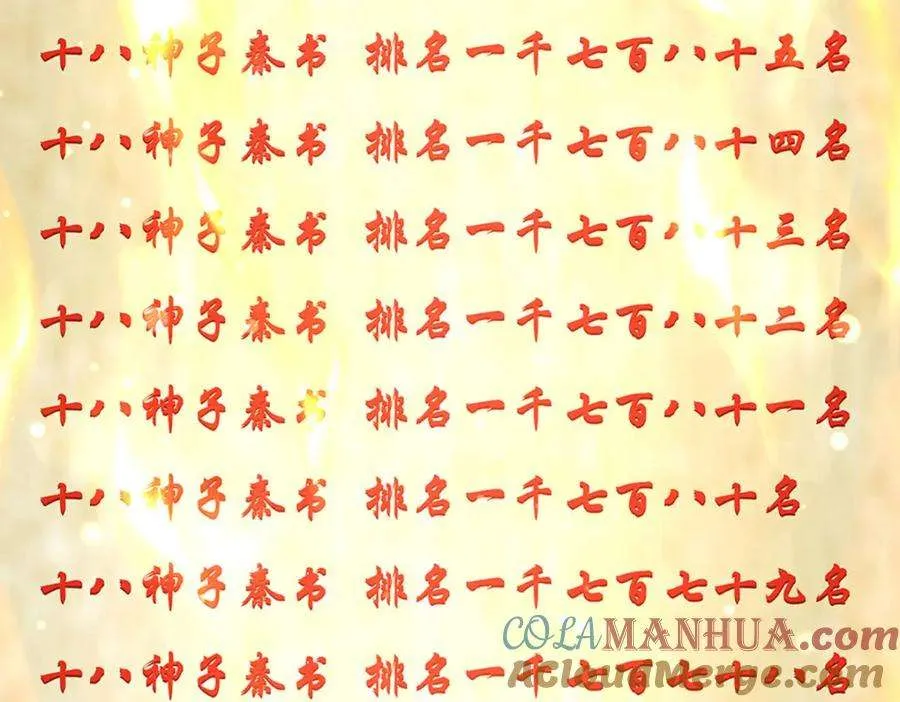 十八神子秦书 排名一千七百八十五名
十八神子秦书 排名一千七百八十四名
十八神子秦书 排名一千七百八十三名
十八神子秦书 排名一千七百八十二名
十八神子秦书 排名一千七百八十一名
十八神子秦书 排名一千七百八十名
十八神子秦书 排名一千七百七十九名
十八神子秦书 排名一千七百七十八名
COLAMANHUA.com
ACloudMerge.com